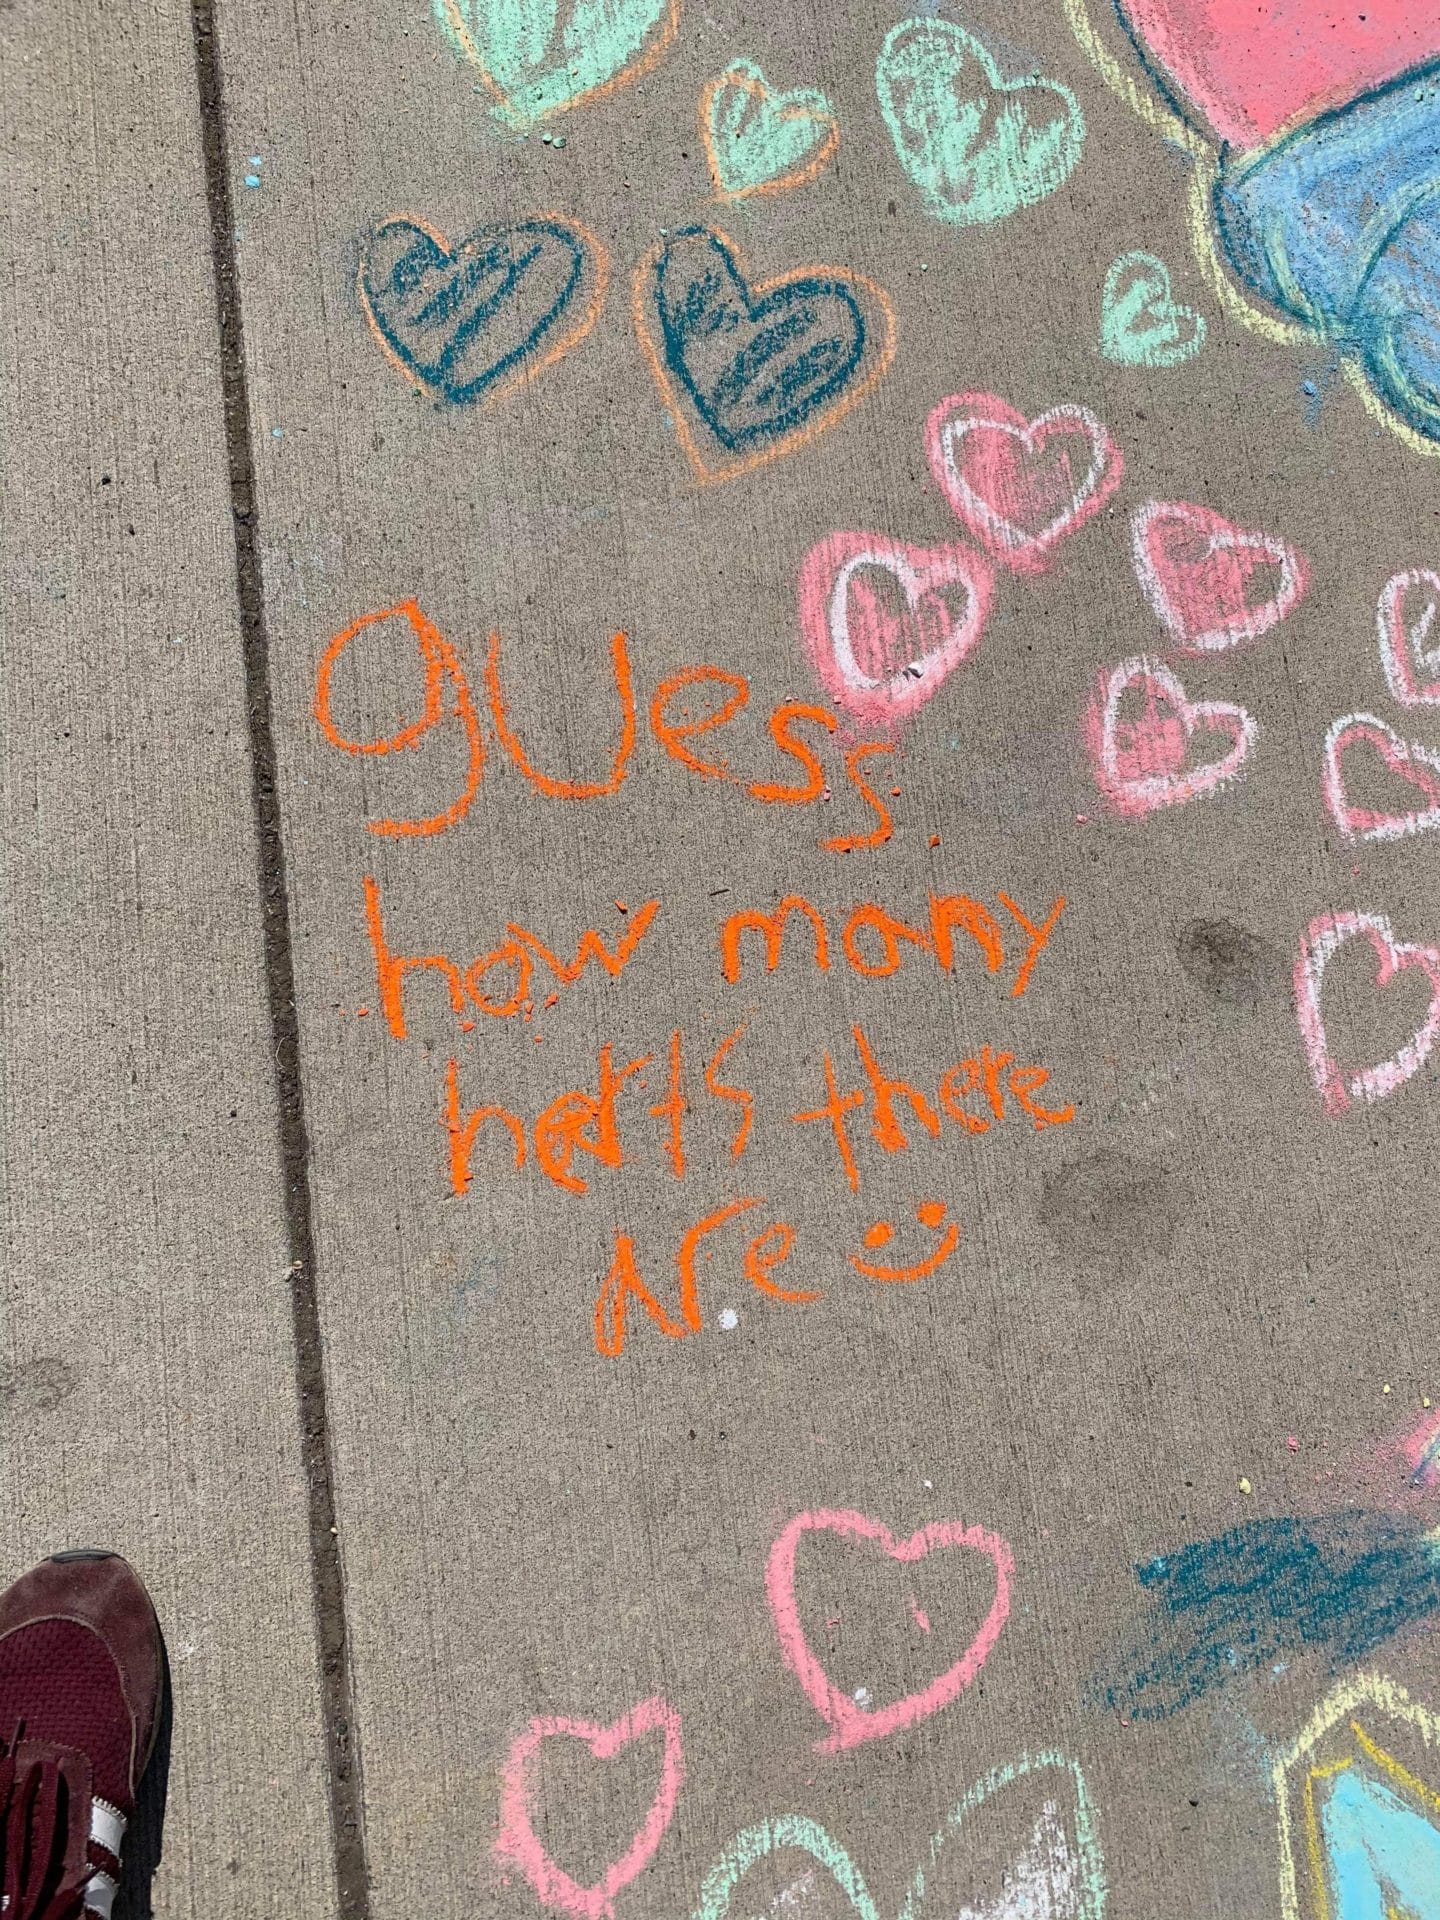 guess
how many
herts there
are